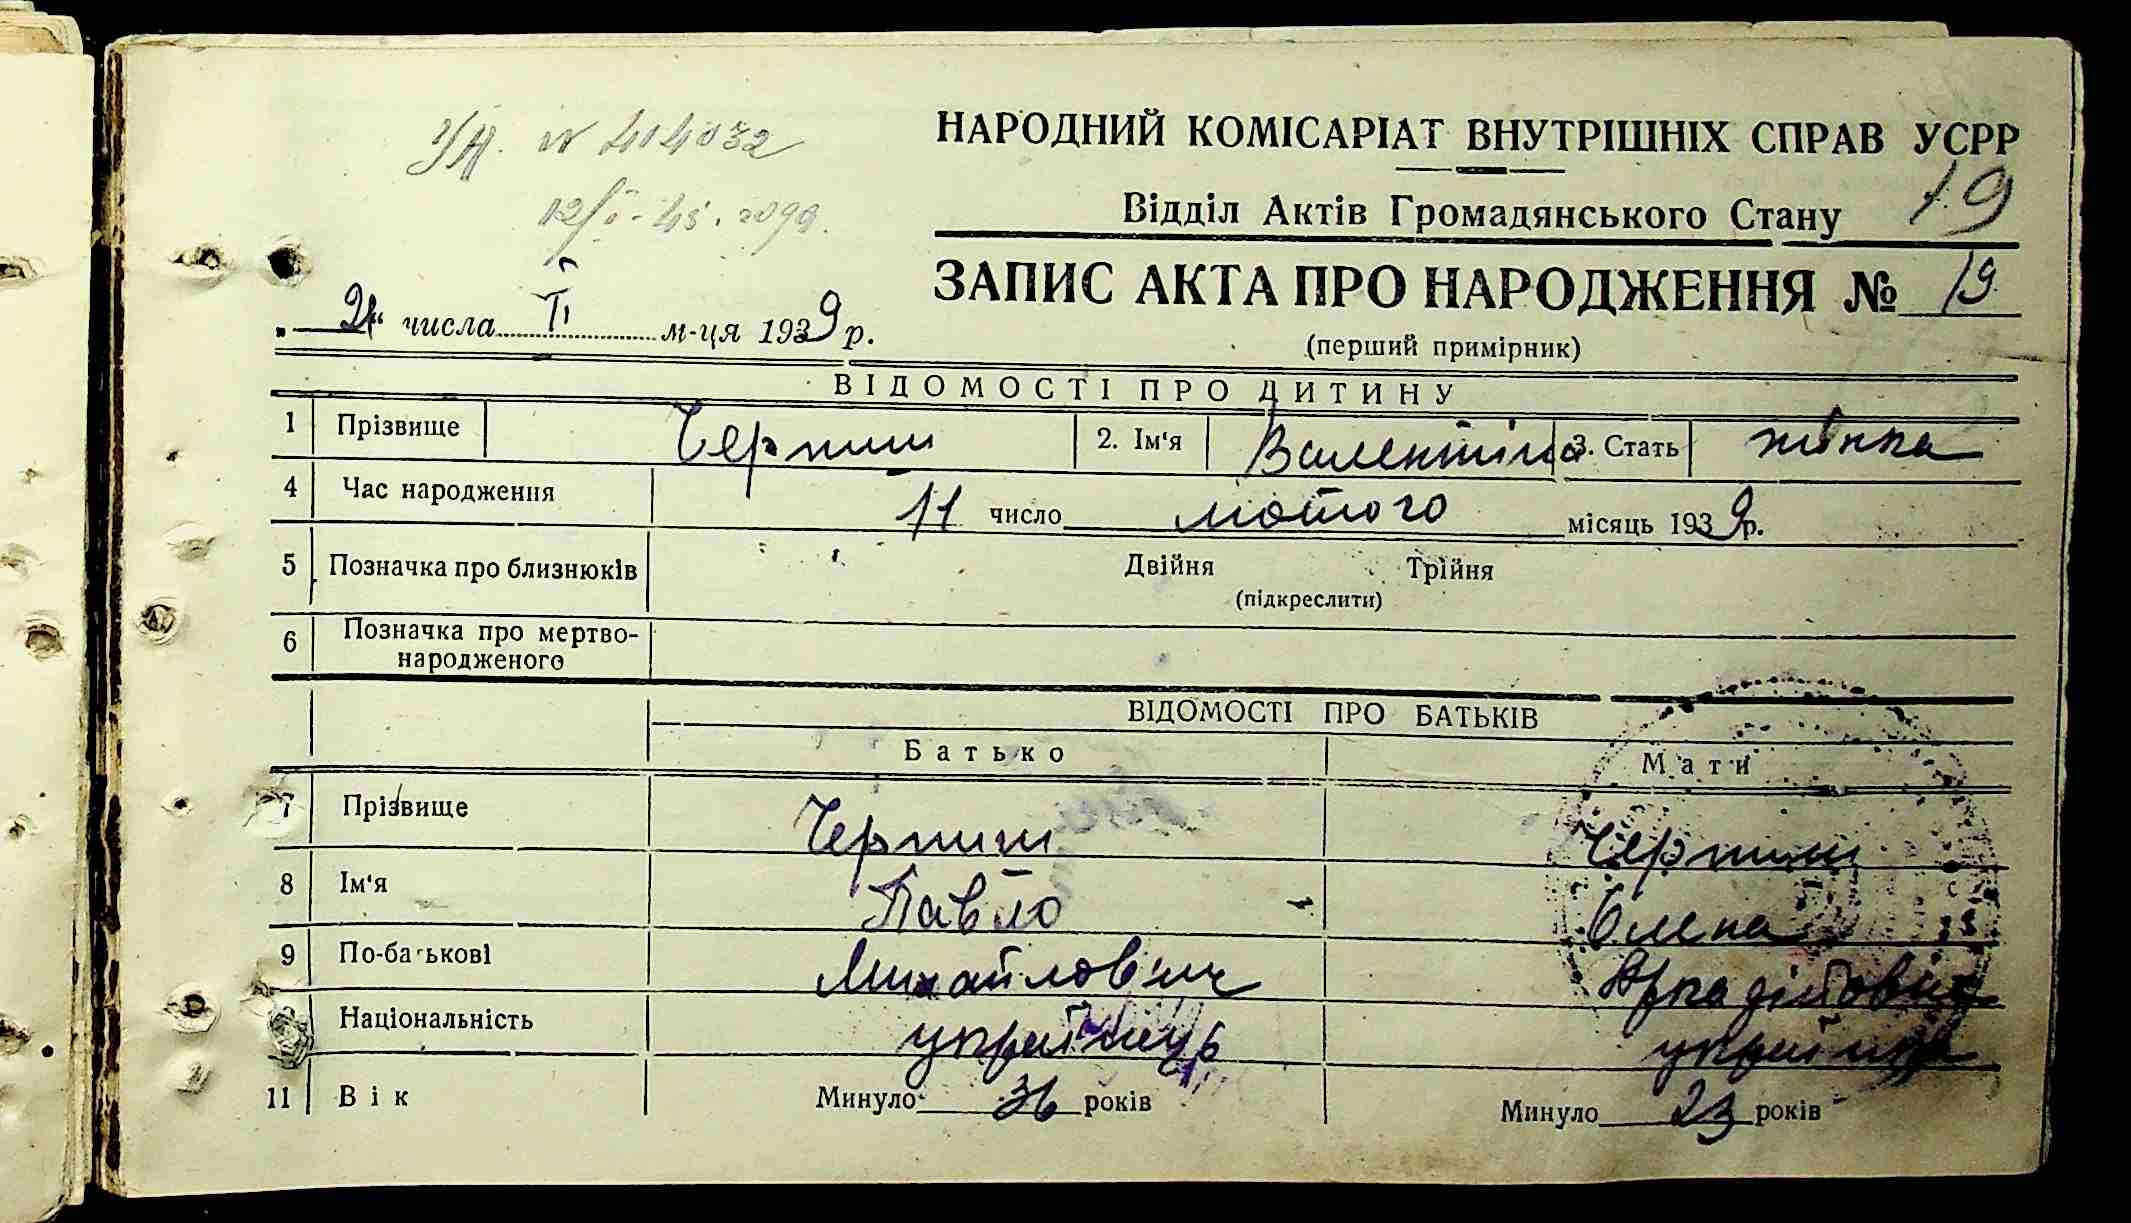 УА. № 414032
НАРОДНИЙ КОМІСАРІАТ ВНУТРІШНІХ СПРАВ УСРР
Відділ Актів Громадянського Стану 19
ЗАПИС АКТА ПРО НАРОДЖЕННЯ № 19
(перший примірник)
числа II м-ця 1939 р.
ВІДОМОСТІ ПРО ДИТИНУ
1 Прізвище Черпиш 2. Ім'я Валентіна 3. Стать жінка
4 Час народження 11 число лютого місяць 1939 р.
5 Позначка про близнюків Двійня Трійня
(підкреслити)
6 Позначка про мертво-
народженого
ВІДОМОСТІ ПРО БАТЬКІВ
Батько Мати
7 Прізвище Черпиш Черпиш
8 Ім'я Павло Олена
9 По-батькові Михайлович Аркадійовна
Національність українець українка
11 Вік Минуло 36 років Минуло 23 років